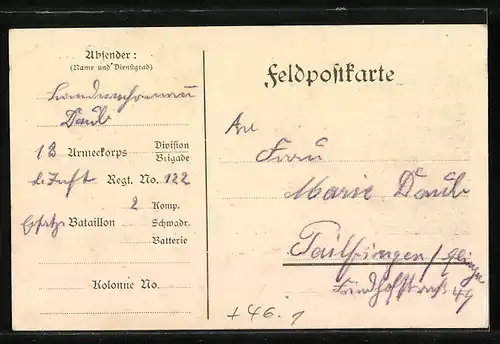 Absender:
(Name und Dienstgrad)
Daub
13 Armeekorps Division
Brigade
Regt. No. 122
2 Komp.
Ersatz Bataillon Schwadr.
Batterie
Kolonne No.
Feldpostkarte
An
Frau
Marie Daub
Tailfingen /
49
+46.1